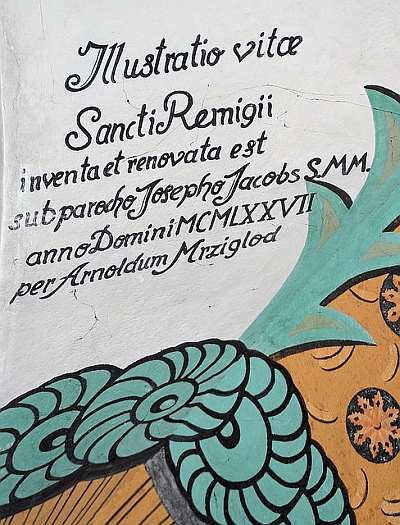 Illustratio vitæ
Sancti Remigii
inventa et renovata est
sub parocho Josepho Jacobs S.M.M.
anno Domini MCMLXXVII
per Arnoldum Mrziglod